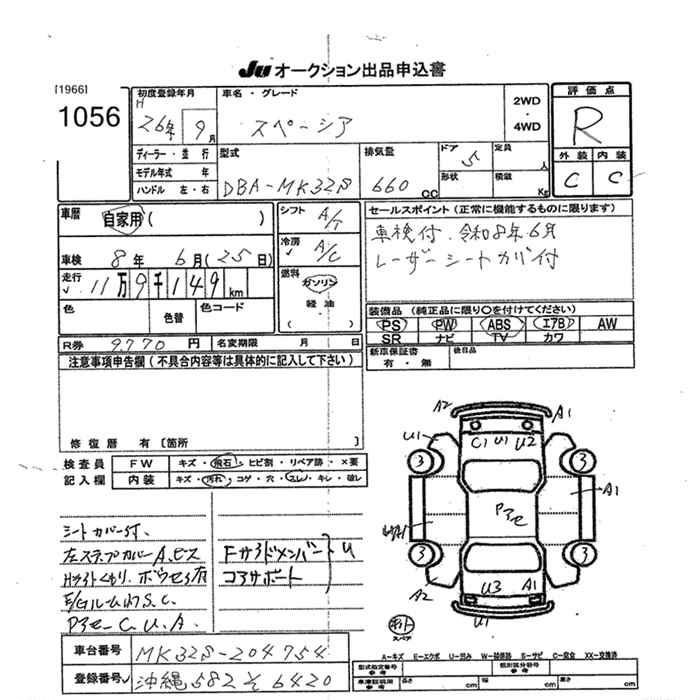 JU オークション出品申込書
[1966]
1056
初度登録年月
H
26年 9月
車名・グレード
スペーシア
2WD
・
4WD
評価点
R
外装 内装
C C
ディーラー・並行
モデル年式 年
ハンドル 左・右
型式
DBA-MK32S
排気量
660 CC
ドア
5
形状
定員
人
積載
Kg
車歴 自家用( )
車検 8年 6月(25日)
走行 11万9千149km
色
色替
色コード
シフト A/T
冷房 A/C
燃料
ガソリン
軽油
( )
セールスポイント(正常に機能するものに限ります)
車検付、令和8年6月
レーザーシートカバ付
装備品(純正品に限り○を付けてください)
PS PW ABS エアB AW
SR ナビ TV カワ
新車保証書
有・無
後日品
R券 9770円 名変期限 月 日
注意事項申告欄(不具合内容等は具体的に記入して下さい)
修復歴 有[箇所 ]
検査員
記入欄
FW キズ・飛石・ヒビ割・リペア跡・×要
内装 キズ・汚れ・コゲ・穴・スレ・キレ・破レ
シートカバー付、
左ステップカバーA、ビス
Hライトくもり、ボウセイ有
E/GルームｻﾋS、C、
Pアセー C、U、A、
Fサイドメンバー
コアサポート
U
A2 A1
U1 C1 U1 U2
3 3
Pアセ
A1
3 3
A2 U3 A1
U1
スペア
A-キズ E-エクボ U-凹み W-補修跡 S-サビ C-腐食 XX-交換済
車台番号 MK32S-204754
登録番号 沖縄 582 を 6420
型式指定番号
参考
類別区分番号
参考
長さ cm
幅 cm
高さ cm